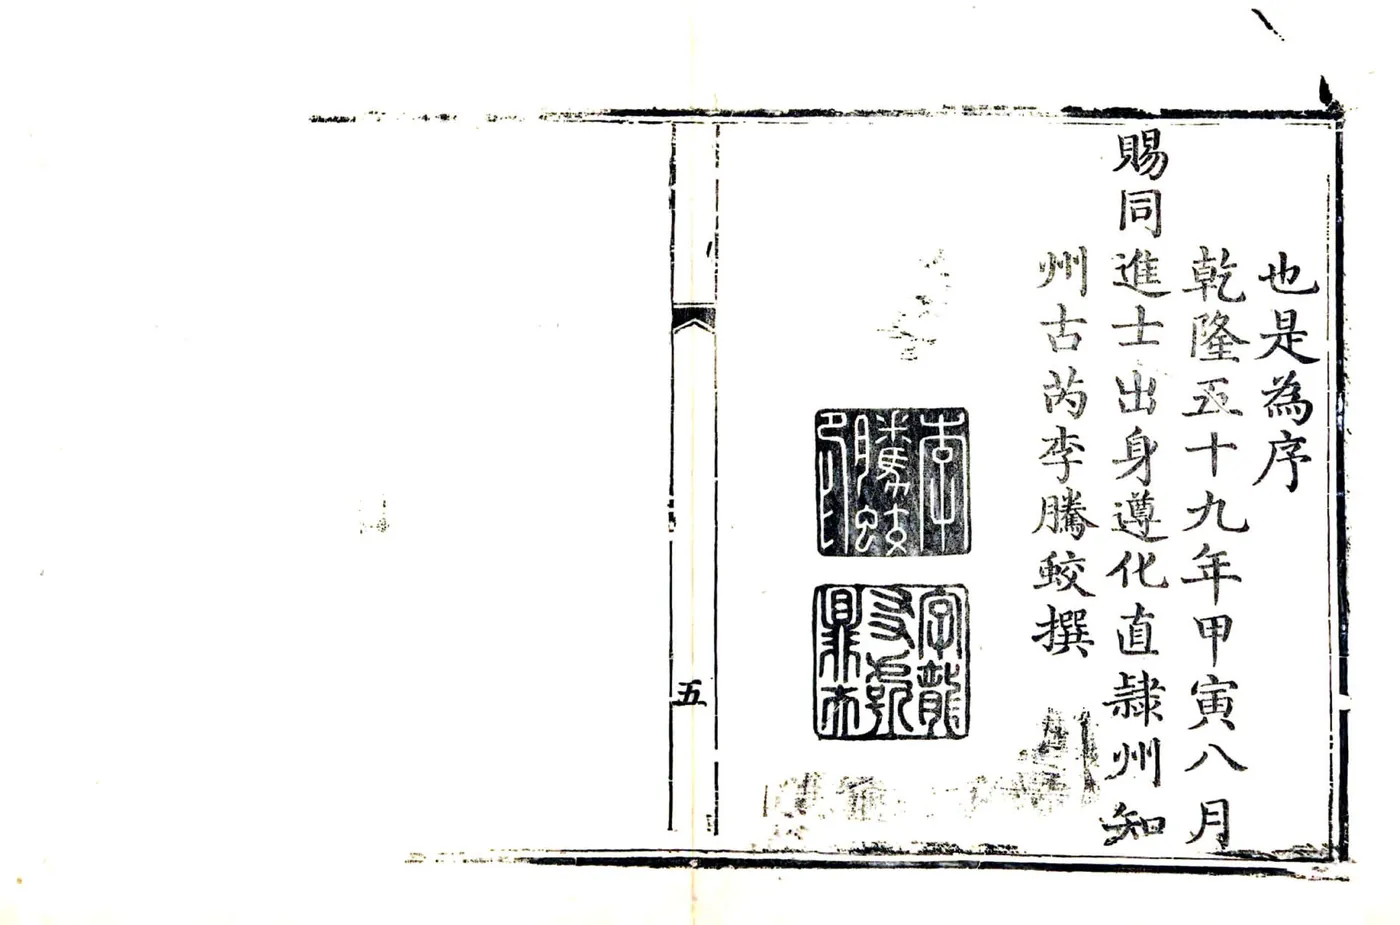 也是為序
乾隆五十九年甲寅八月
賜同進士出身遵化直隷州知
州古芮李騰蛟撰
李騰蛟印
字龍友號
五